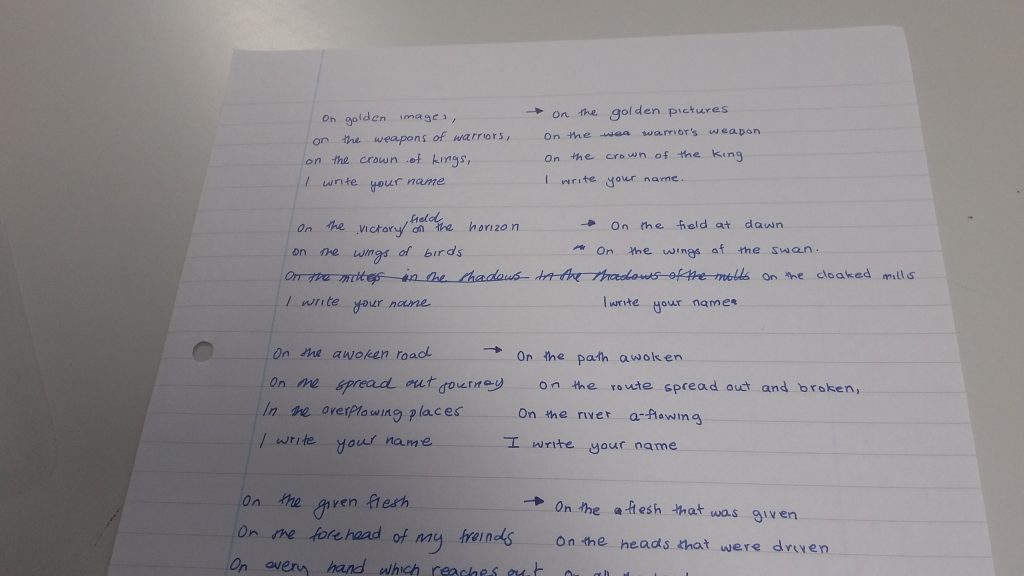 On golden images, → On the golden pictures
on the weapons of warriors, On the wea warrior's weapon
on the crown of kings, On the crown of the king
I write your name I write your name.
On the victory field on the horizon → On the field at dawn
on the wings of birds On the wings of the swan.
On the milles in the shadows in the shadows of the mills on the cloaked mills
I write your name I write your name
On the awoken road → On the path awoken
On the spread out journey on the route spread out and broken,
In the overflowing places On the river a-flowing
I write your name I write your name
On the given flesh → On the flesh that was given
On the forehead of my freinds On the heads that were driven
On every hand which reaches out On all the